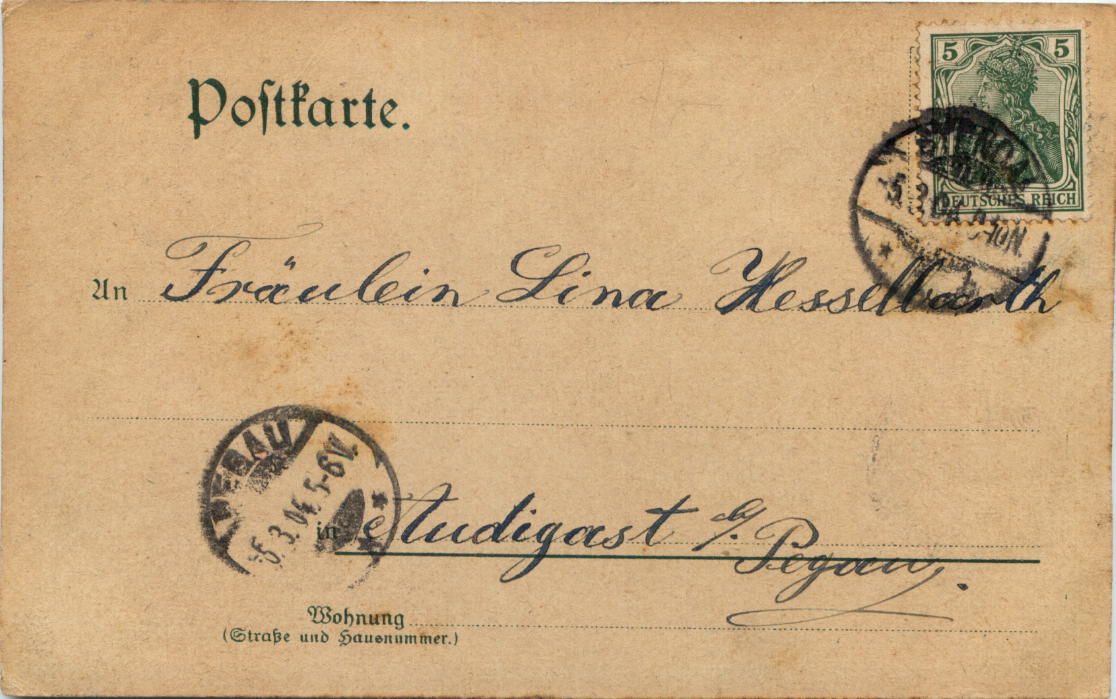 Postkarte.
5 5
DEUTSCHES REICH
5.3.04
An Fräulein Lina Hesselbarth
PEGAU
5.3.04 5-6N
in Audigast b/ Pegau.
Wohnung
(Straße und Hausnummer.)